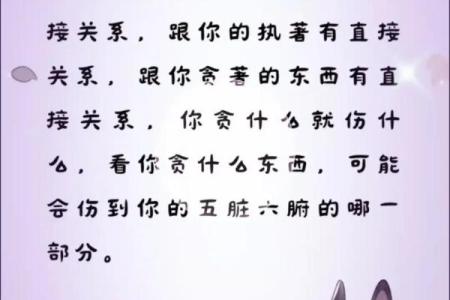 接关系，跟你的执著有直接
关系，跟你贪著的东西有直
接关系，你贪什么就伤什
么，看你贪什么东西，可能
会伤到你的五脏六腑的哪一
部分。